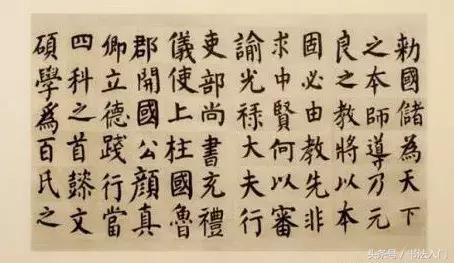 勑國儲為天下
之本師導乃元
良之教將以本
固必由教先非
求中賢何以審
諭光祿大夫行
吏部尚書充禮
儀使上柱國魯
郡開國公顏真
卿立德踐行當
四科之首懿文
碩學為百氏之
头条号 / 书法入门